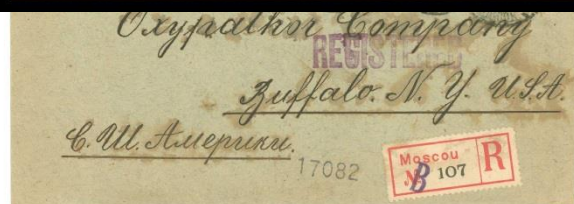 Oxypathor Company
REGISTERED
Buffalo. N. Y. U.S.A.
С. Ш. Америки.
17082
Moscou R
№ B 107